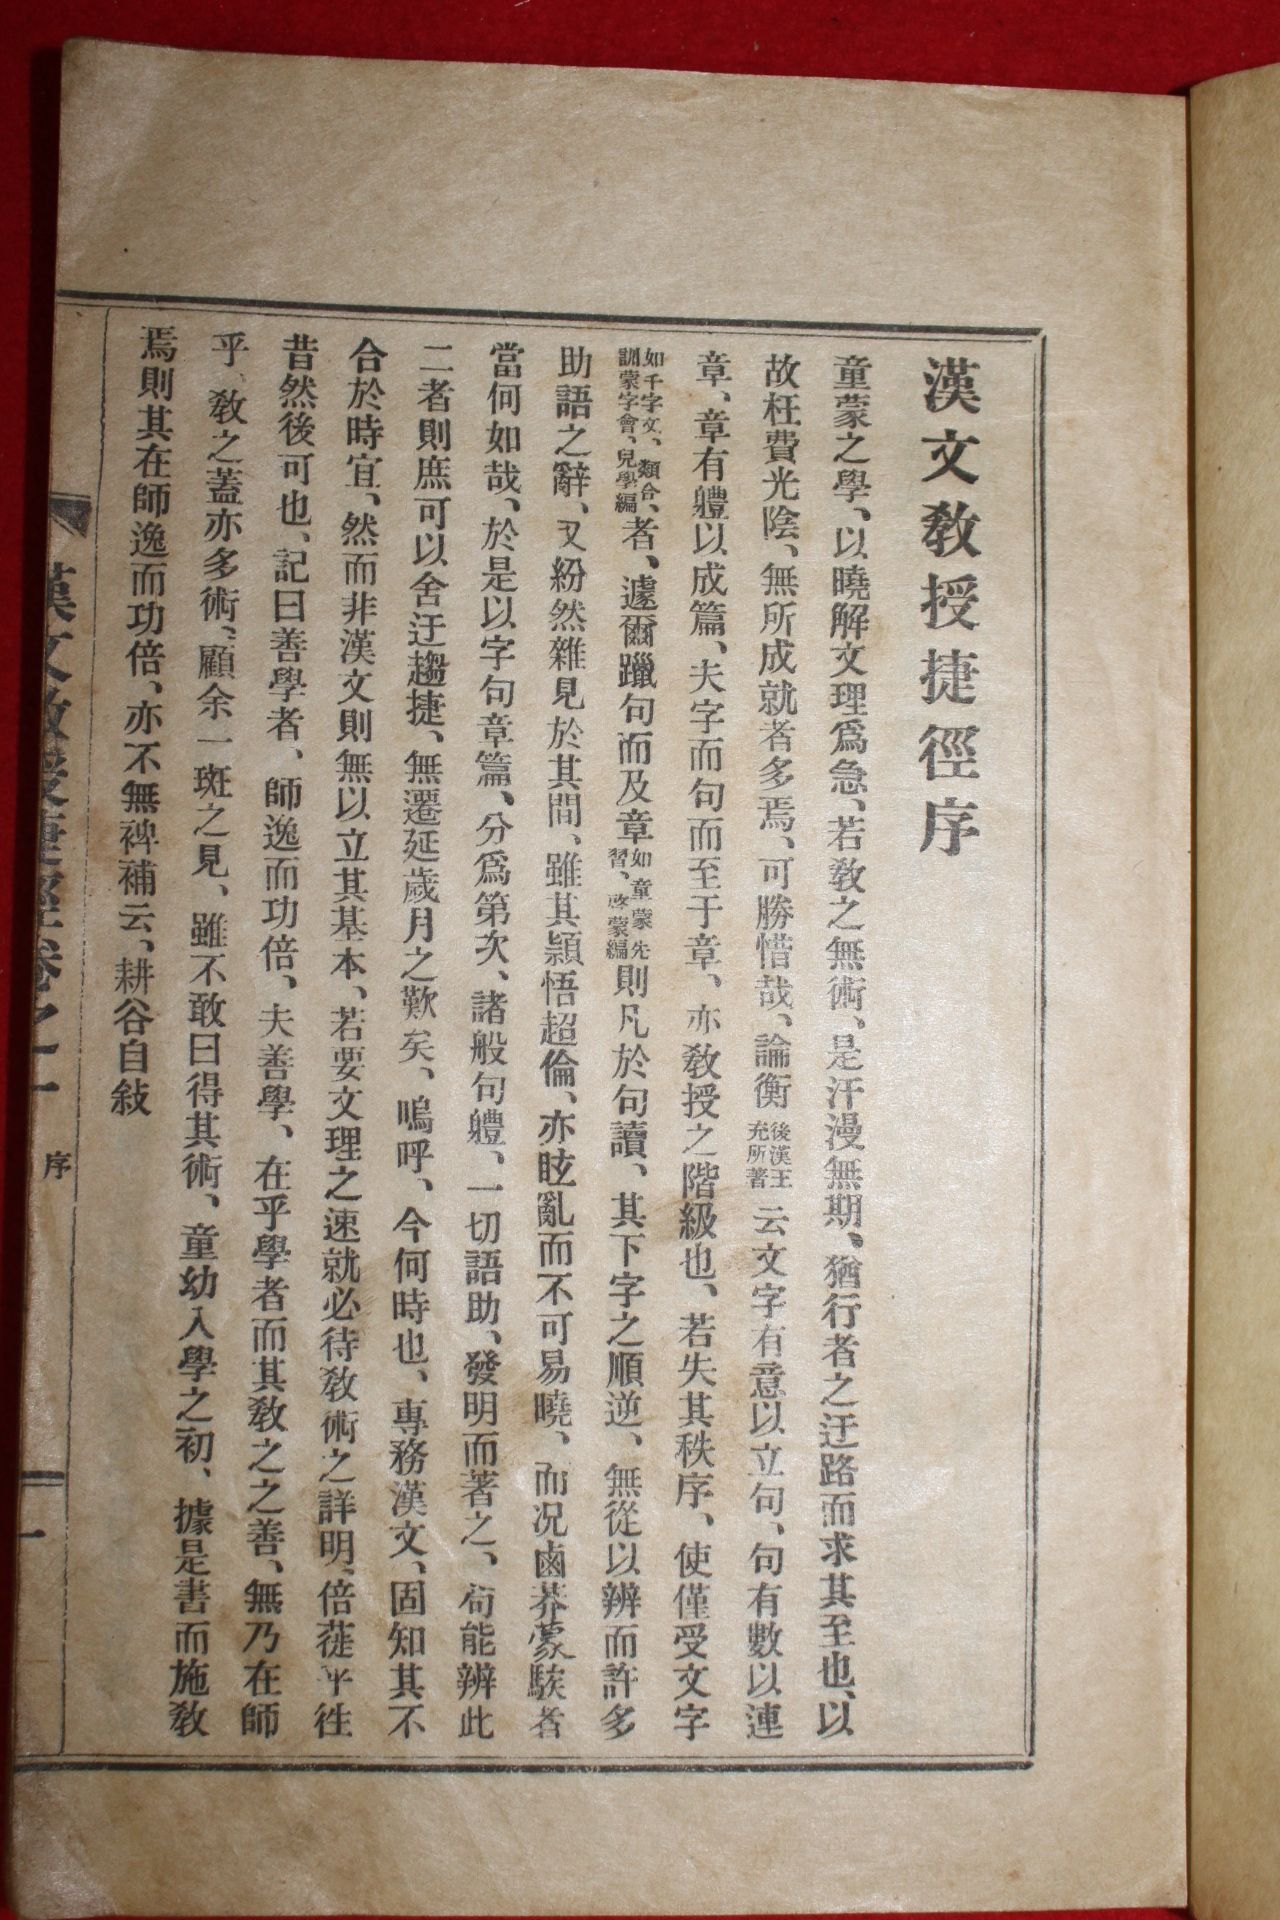 漢文敎授捷徑序
童蒙之學、以曉解文理爲急、若敎之無術、是汗漫無期、猶行者之迂路而求其至也、以
故枉費光陰、無所成就者多焉、可勝惜哉、論衡後漢王充所著云文字有意以立句、句有數以連
章、章有軆以成篇、夫字而句而至于章、亦敎授之階級也、若失其秩序、使僅受文字
如千字文、類合、訓蒙字會、兒學編、者、遽爾躐句而及章如童蒙先習、啓蒙編則凡於句讀、其下字之順逆、無從以辨而許多
助語之辭、又紛然雜見於其間、雖其頴悟超倫、亦眩亂而不可易曉、而况鹵莽蒙騃者
當何如哉、於是以字句章篇、分爲第次、諸般句軆、一切語助、發明而著之、苟能辨此
二者則庶可以舍迂趨捷、無遷延歲月之歎矣、嗚呼、今何時也、專務漢文、固知其不
合於時宜、然而非漢文則無以立其基本、若要文理之速就必待敎術之詳明、倍蓰乎徃
昔然後可也、記曰善學者、師逸而功倍、夫善學、在乎學者而其敎之之善、無乃在師
乎、敎之蓋亦多術、顧余一斑之見、雖不敢曰得其術、童幼入學之初、據是書而施敎
焉則其在師逸而功倍、亦不無裨補云、耕谷自敍
漢文敎授捷徑卷之一 序 一